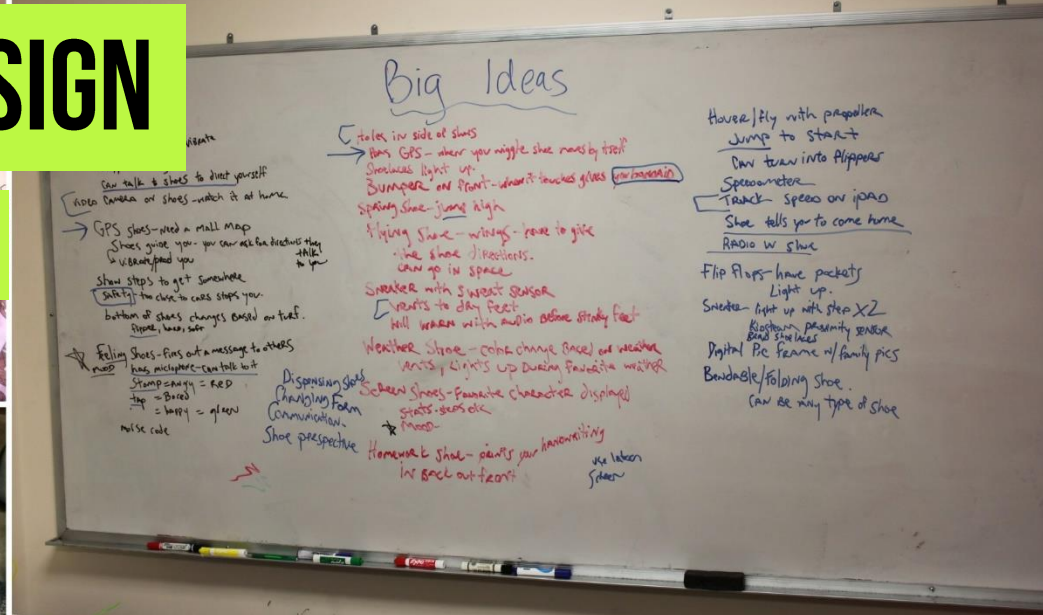 SIGN
Big Ideas
vibrate
can talk to shoes to direct yourself
VIDEO CAMERA on shoes - watch it at home.
GPS shoes - need a mall map
shoes guide you - you can ask for directions they
TALK
to you
vibrate/prod you
Show steps to get somewhere
Safety - too close to cars stops you.
bottom of shoes changes BASED on turf.
flipper, hard, soft
Feeling Shoes - Fires out a message to others
mood
has microphone - can talk to it
Stomp = angry = RED
tap = Bored
= happy = green
noise code
Dispensing shoes
Changing Form
Communication.
Shoe perspective
holes in side of shoes
Has GPS - when you wiggle shoe moves by itself
Shoelaces light up.
Bumper on front - when it touches gives
Spring Shoe - jump high
Flying Shoe - wings - have to give
the shoe directions.
can go in space
Sneaker with sweat sensor
vents to dry feet
Will warn with audio before stinky feet
Weather Shoe - color change Based on weather
vents, lights up during favorite weather
Screen Shoes - Favorite character displayed
stats -
mood
Homework Shoe - prints your handwriting
in Back out front
use
Screen
Hover/fly with propeller
Jump to START
CAN turn into flippers
Speedometer
TRACK speed on iPAD
Shoe tells you to come home
RADIO W shoe
Flip Flops - have pockets
Light up.
Sneaker - light up with step X2
proximity sensor
shoelaces
Digital Pic frame w/family pics
Bendable/Folding Shoe.
CAN Be any type of shoe